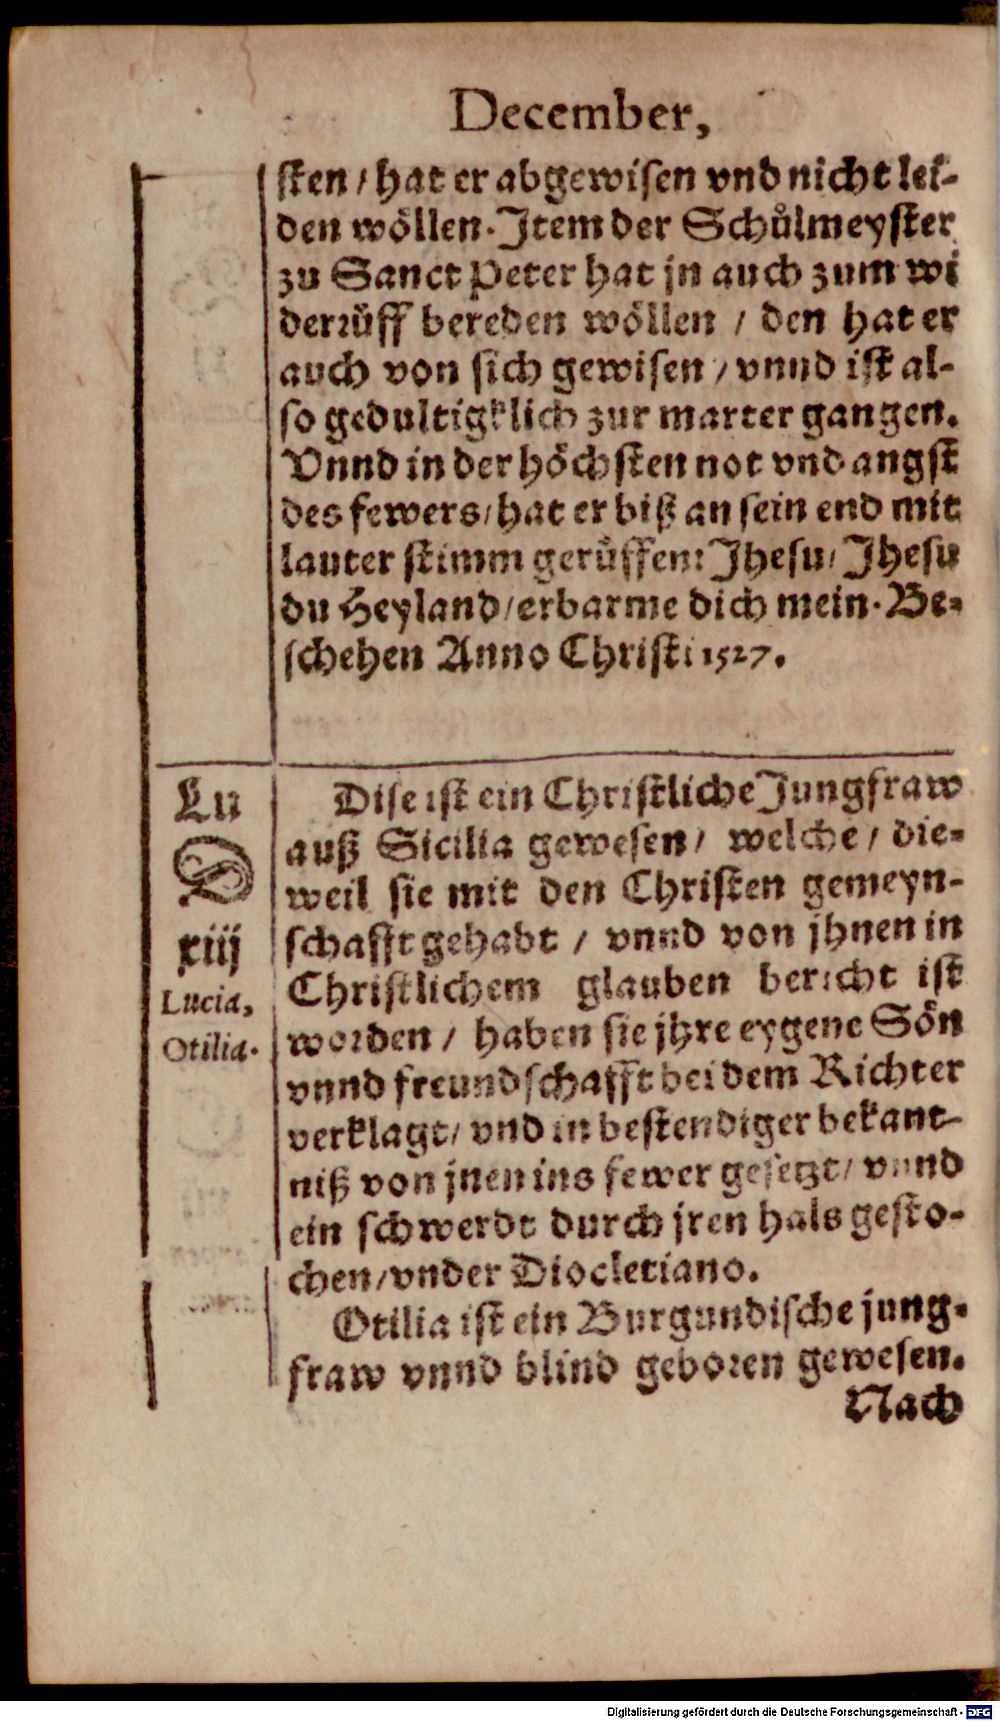 December,
sten / hat er abgewisen vnd nicht lei-
den wöllen. Item der Schůlmeyster
zu Sanct Peter hat jn auch zum wi
derrůff bereden wöllen / den hat er
auch von sich gewisen / vnnd ist al-
so gedultigklich zur marter gangen.
Vnnd in der höchsten not vnd angst
des fewers / hat er biß an sein end mit
lauter stimm gerůffen: Jhesu / Jhesu
du Heyland / erbarme dich mein. Be-
schehen Anno Christi 1527.
Lu
D
xiij
Lucia,
Otilia.
Dise ist ein Christliche Jungfraw
auß Sicilia gewesen / welche / die-
weil sie mit den Christen gemeyn-
schafft gehabt / vnnd von jhnen in
Christlichem glauben bericht ist
worden / haben sie jhre eygene Sön
vnnd freundschafft bei dem Richter
verklagt / vnd in bestendiger bekant-
niß von jnen ins fewer gesetzt / vnnd
ein schwerdt durch jren hals gesto-
chen / vnder Diocletiano.
Otilia ist ein Burgundische jung-
fraw vnnd blind geboren gewesen.
Nach
Digitalisierung gefördert durch die Deutsche Forschungsgemeinschaft - DFG